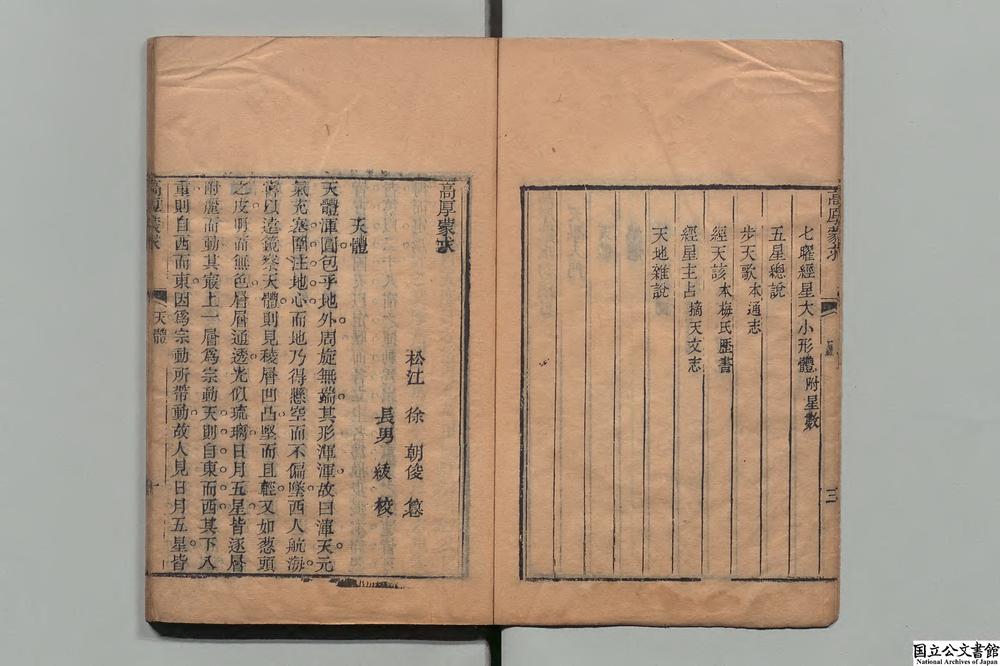 高厚蒙求
七曜經星大小形體附星數
五星總說
步天歌本通志
經天該本梅氏歷書
經星主占摘天文志
天地雜說
三
高厚蒙求
松江 徐朝俊 
長男 綾 校
天體
天體渾圓包乎地外周旋無端其形渾渾故曰渾天元
氣充塞圍注地心而地乃得懸空而不偏墜西人航海
嘗以遠鏡察天體則見稜層凹凸堅而且輕又如葱頭
之皮明而無色層層通透光似琉璃日月五星皆逐層
附麗而動其最上一層爲宗動天則自東而西其下八
重則自西而東因爲宗動所帶動故人見日月五星皆
高厚蒙求
天體
国立公文書館
National Archives of Japan